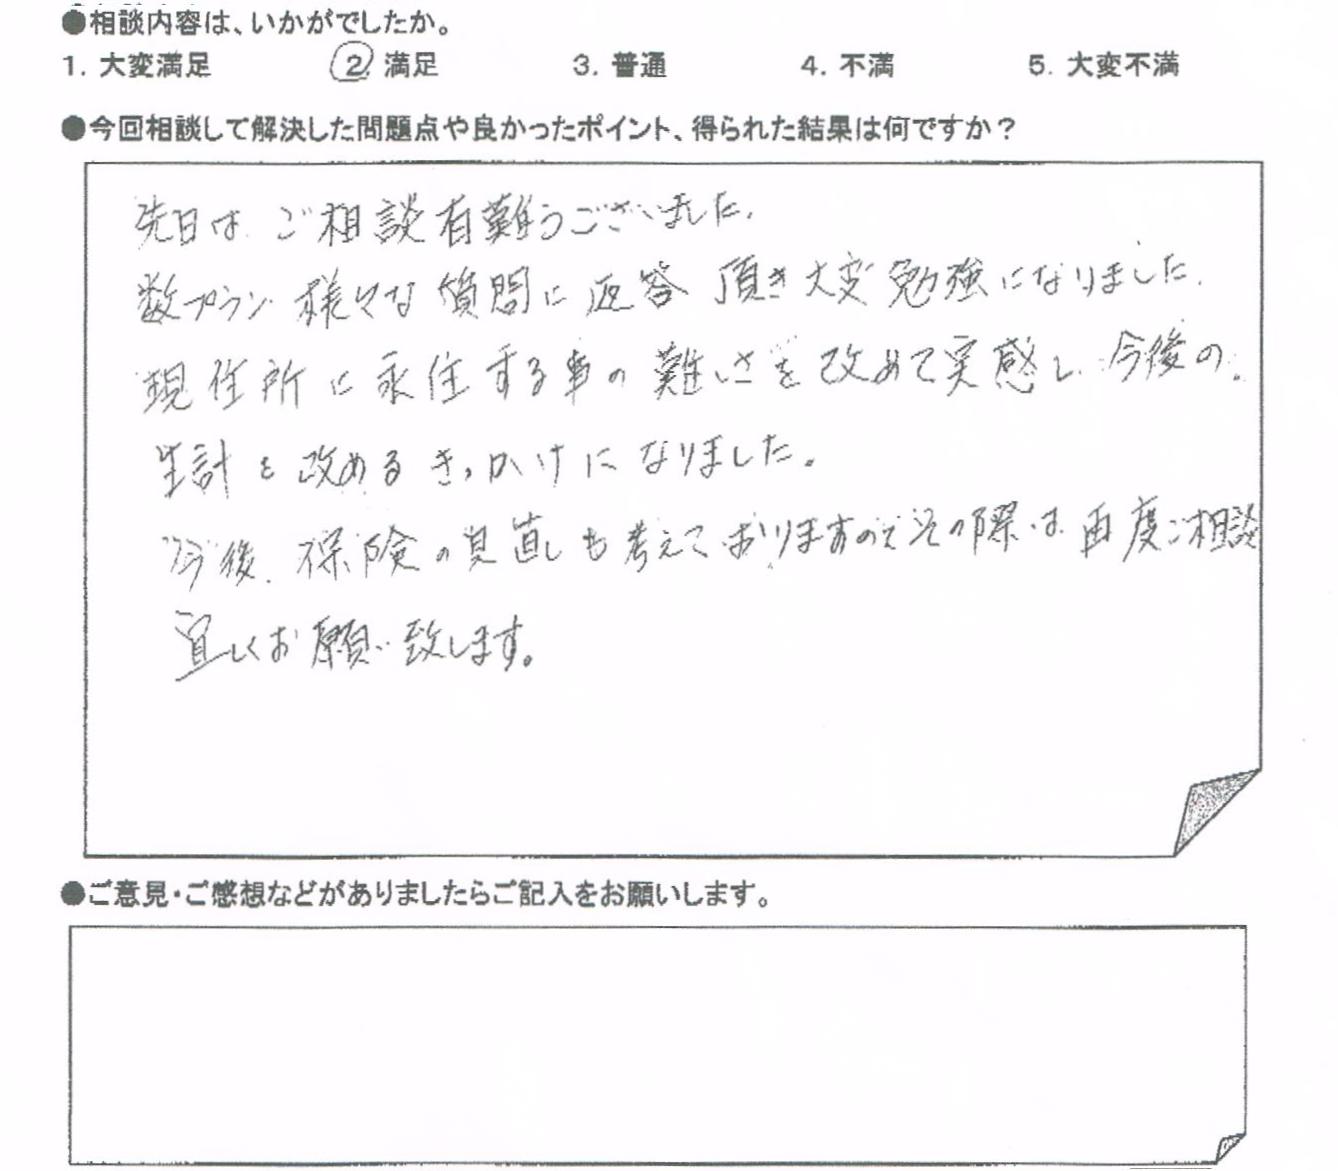 ●相談内容は、いかがでしたか。
1. 大変満足 2. 満足 3. 普通 4. 不満 5. 大変不満
●今回相談して解決した問題点や良かったポイント、得られた結果は何ですか？
先日は ご相談有難うございました。
数プラン 様々な質問に返答 頂き大変勉強になりました。
現住所に永住する事の難しさを改めて実感し 今後の
生計を改めるきっかけになりました。
今後、保険の見直しも考えておりますのでその際は再度ご相談
宜しくお願い致します。
●ご意見・ご感想などがありましたらご記入をお願いします。